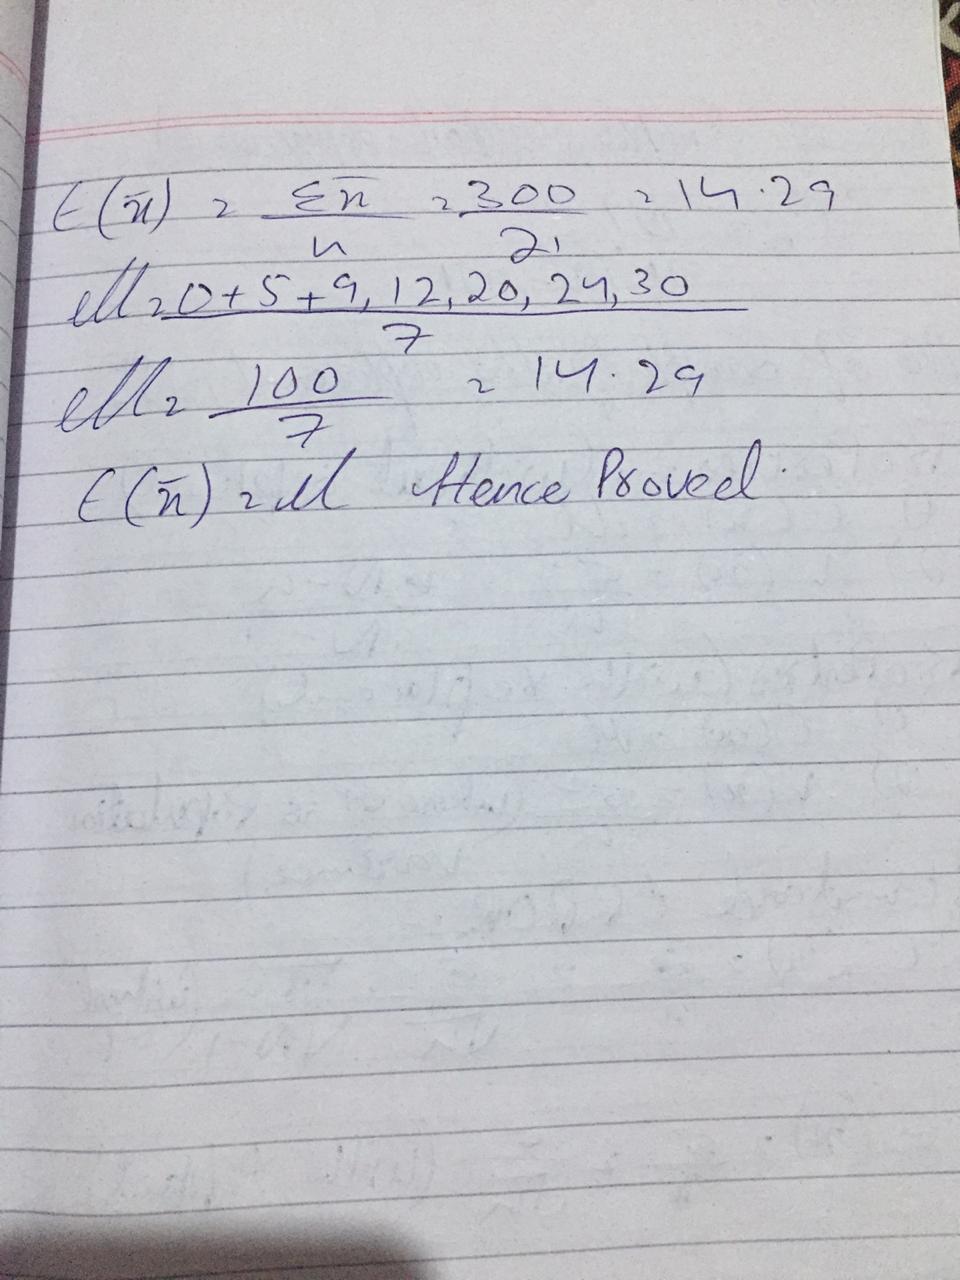 E(x̄) = Σx̄ / n = 300 / 21 = 14.29
M = 0+5+9,12,20,24,30 / 7
M = 100 / 7 = 14.29
E(x̄) = M Hence Proved.